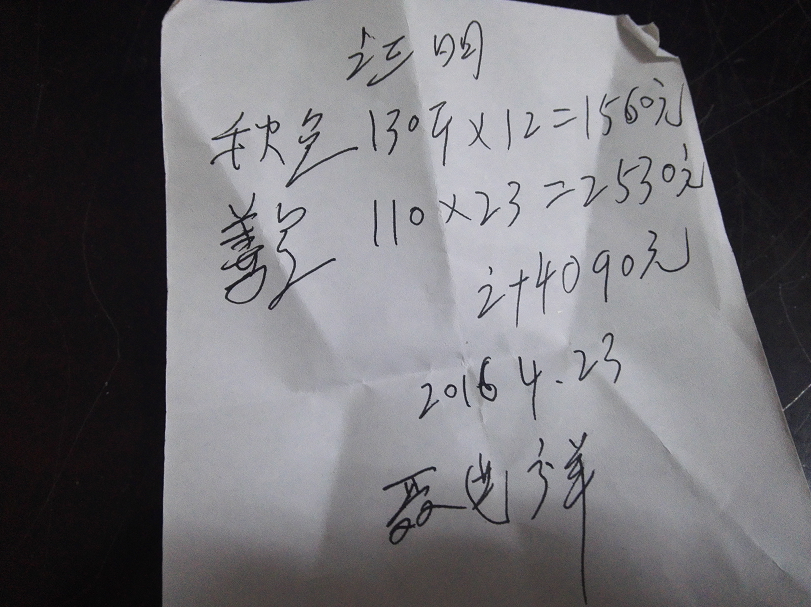 证明
秋色 130平×12=1560元
善究 110×23=2530元
计4090元
2016 4.23